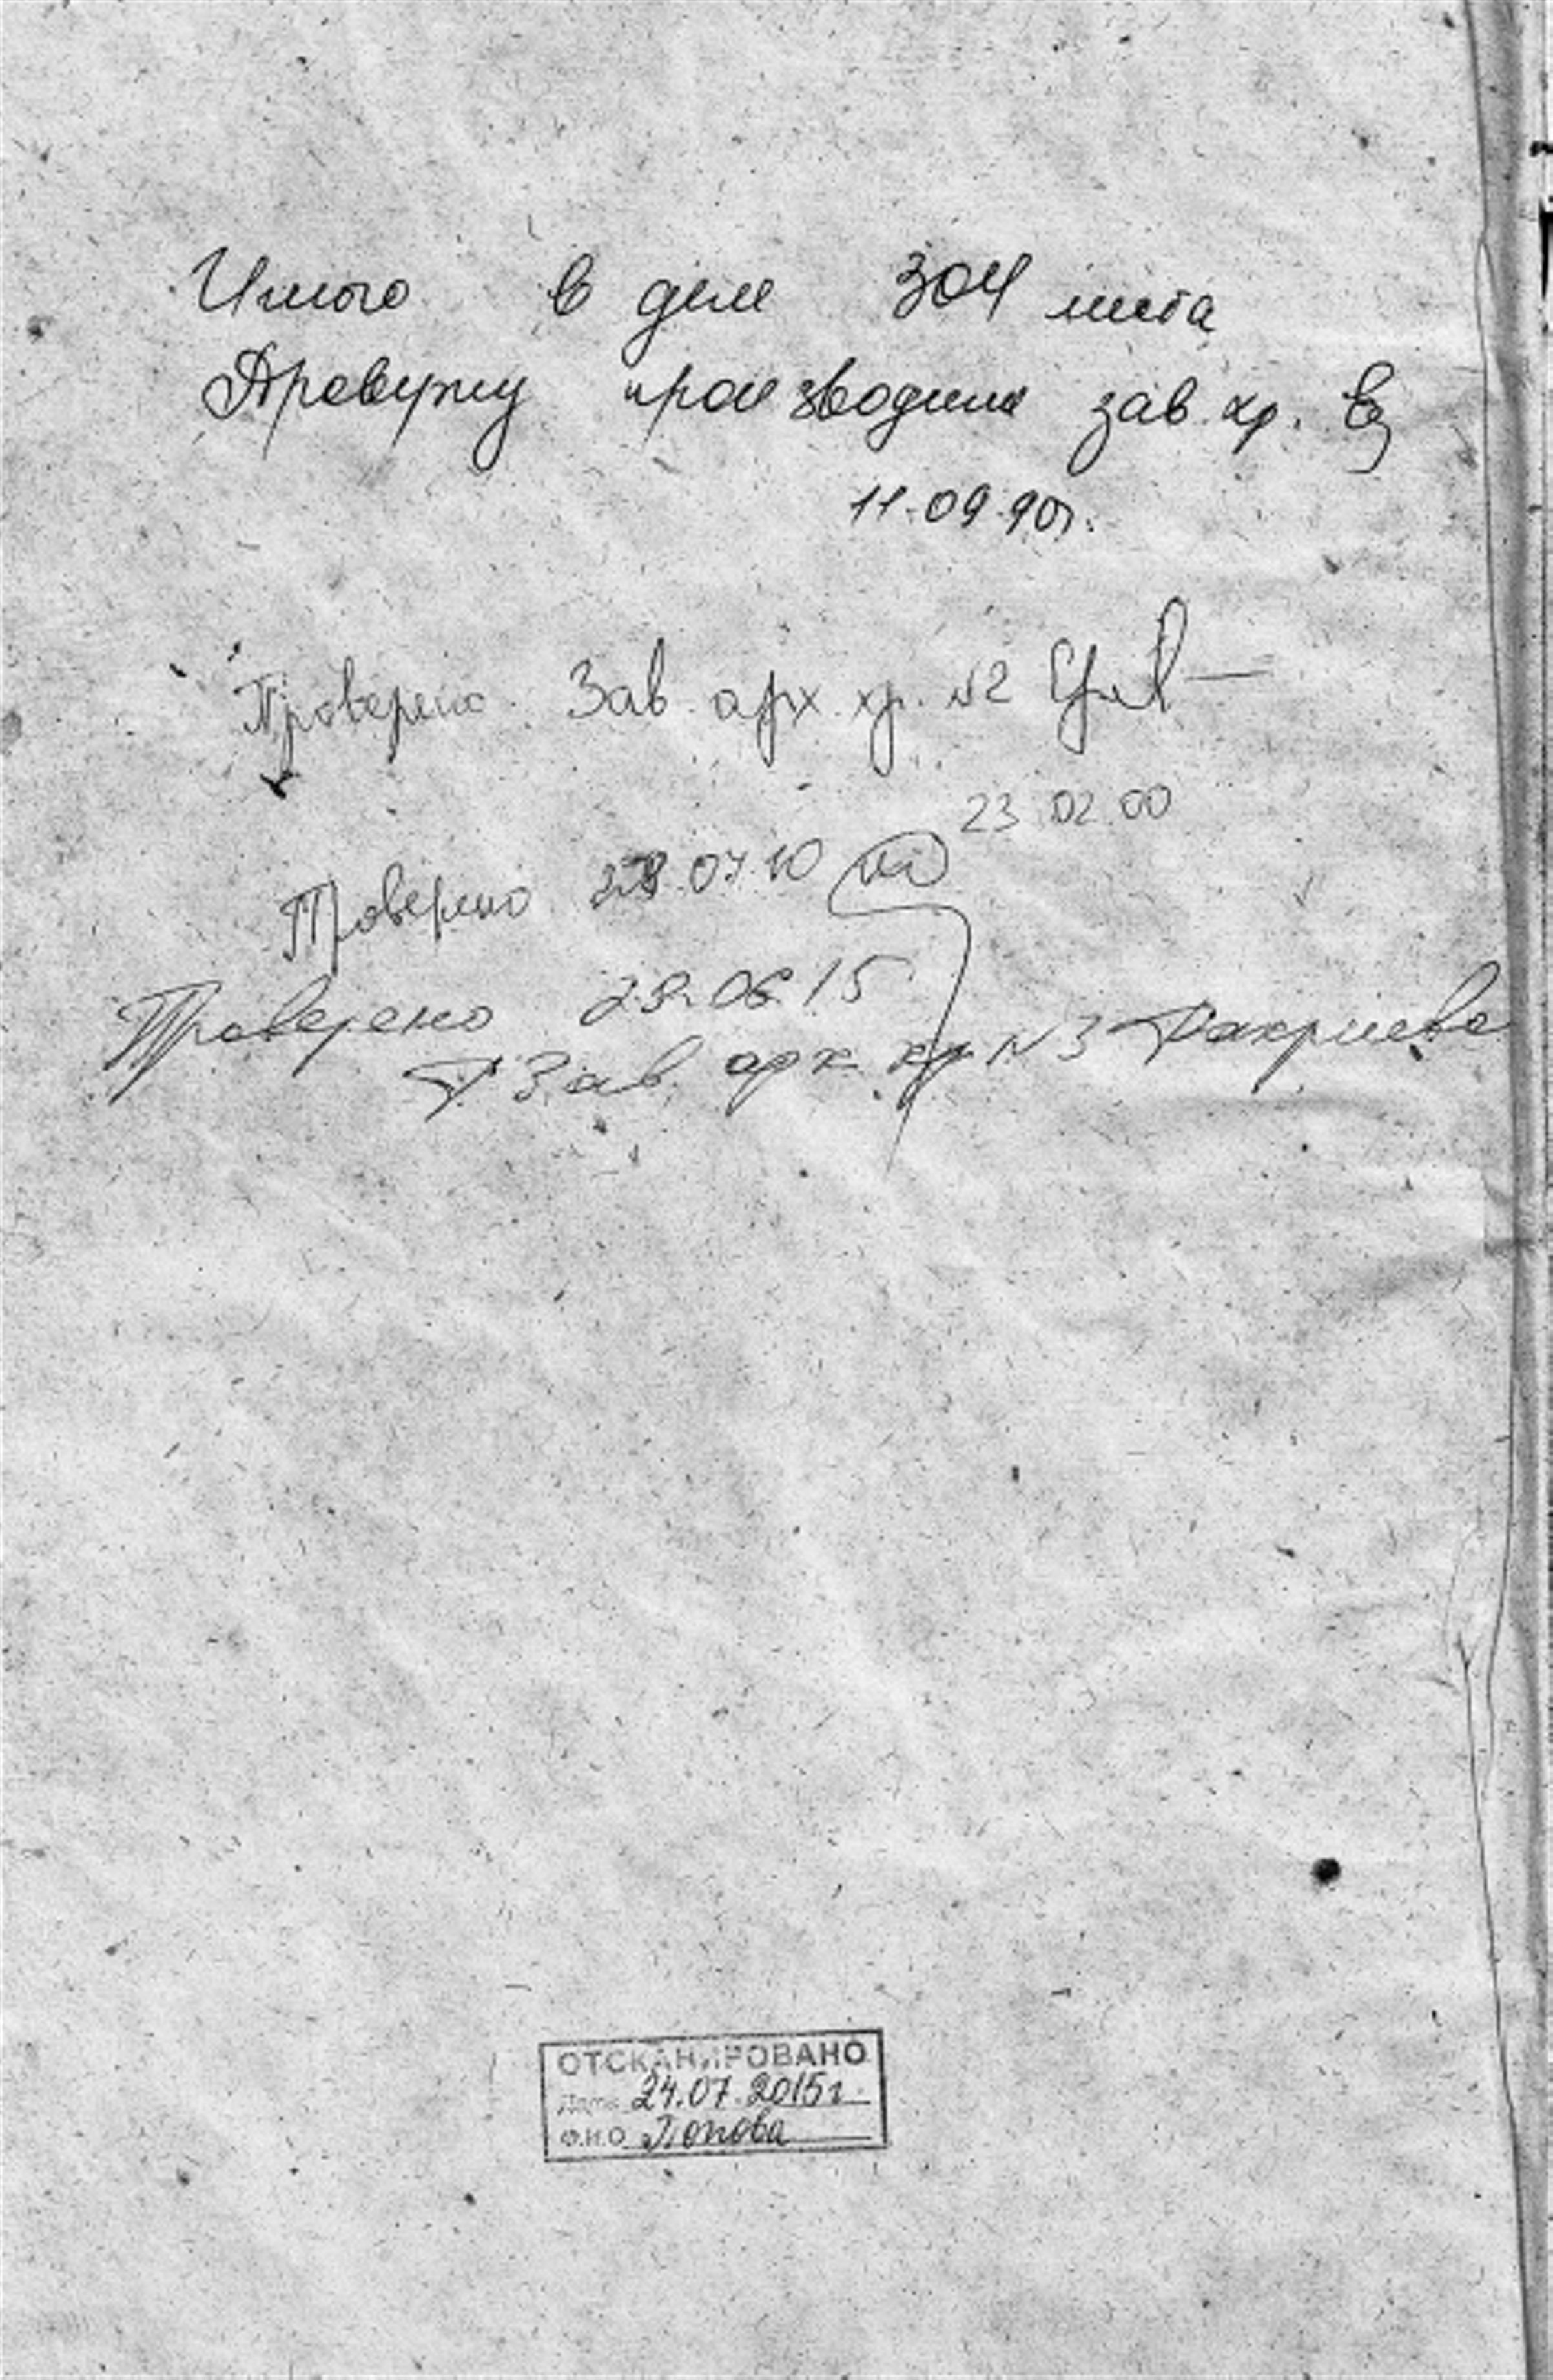 Итого в деле 304 листа
Проверку производила зав. хр.
11.09.90г.
Проверено Зав. арх. хр. №2
23.02.00
Проверено 28.07.10
Проверено 23.06.15
Зав. арх. хр. №3
ОТСКАНИРОВАНО
Дата 24.07.2015г.
Ф.И.О. Попова